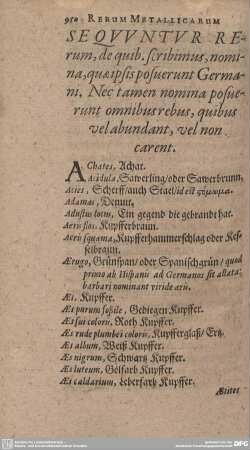 950 RERUM METALLICARUM
SEQVVNTVR RE-
rum, de quib. scribimus, nomi-
na, quæ ipsis posuerunt Germa-
ni. Nec tamen nomina posue-
runt omnibus rebus, quibus
vel abundant, vel non
carent.
AChates, Achat.
Acidula, Sawerling/oder Sawerbrunn,
Acies, Scherff/auch Stael/id est
Adamas, Demut.
Adustus locus, Ein gegend die gebrandt hat.
Aeris flos, Kupfferbraun.
Aeris squama, Kupfferhammerschlag oder Kes-
selbraun.
Ærugo, Grünspan/oder Spanischgrün/quod
primo ab Hispanis ad Germanos sit allata:
barbari nominant viride æris.
Æs, Kupffer.
Æs purum fossile, Gediegen Kupffer.
Æs sui coloris, Roth Kupffer.
Æs rude plumbei coloris, Kupfferglaß/Ertz.
Æs album, Weiß Kupffer.
Æs nigrum, Schwartz Kupffer.
Æs luteum, Gölfarb Kupffer.
Æs caldarium, Leberfarb Kupffer.
Ætites